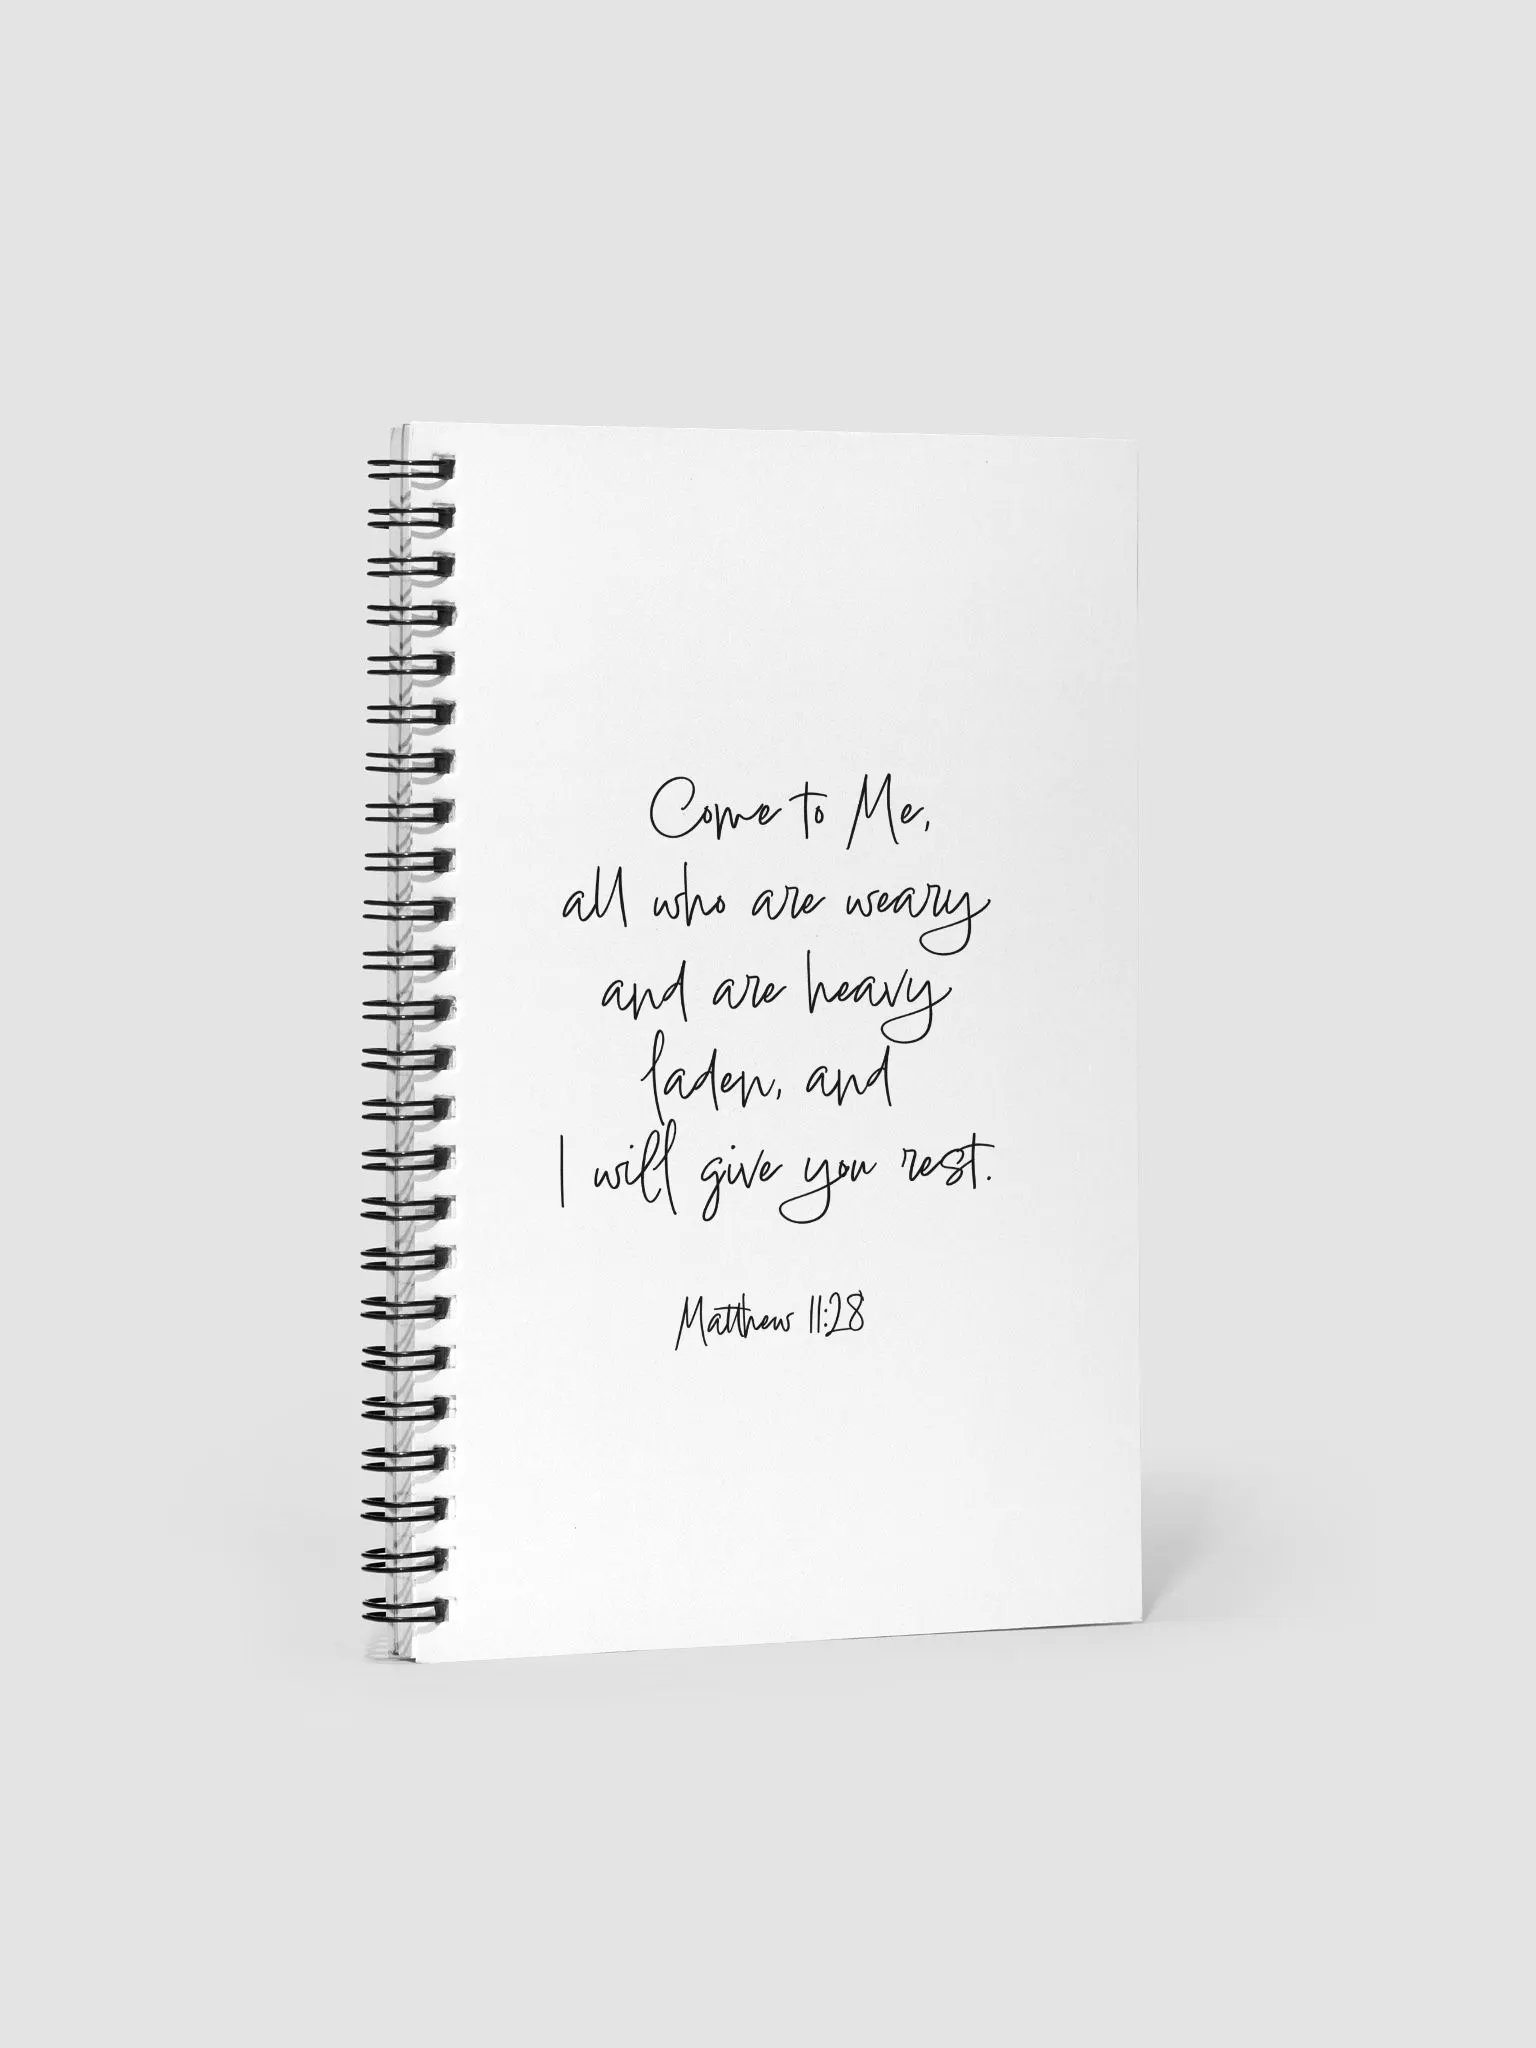 Come to Me,
all who are weary
and are heavy
laden, and
I will give you rest.
Matthew 11:28